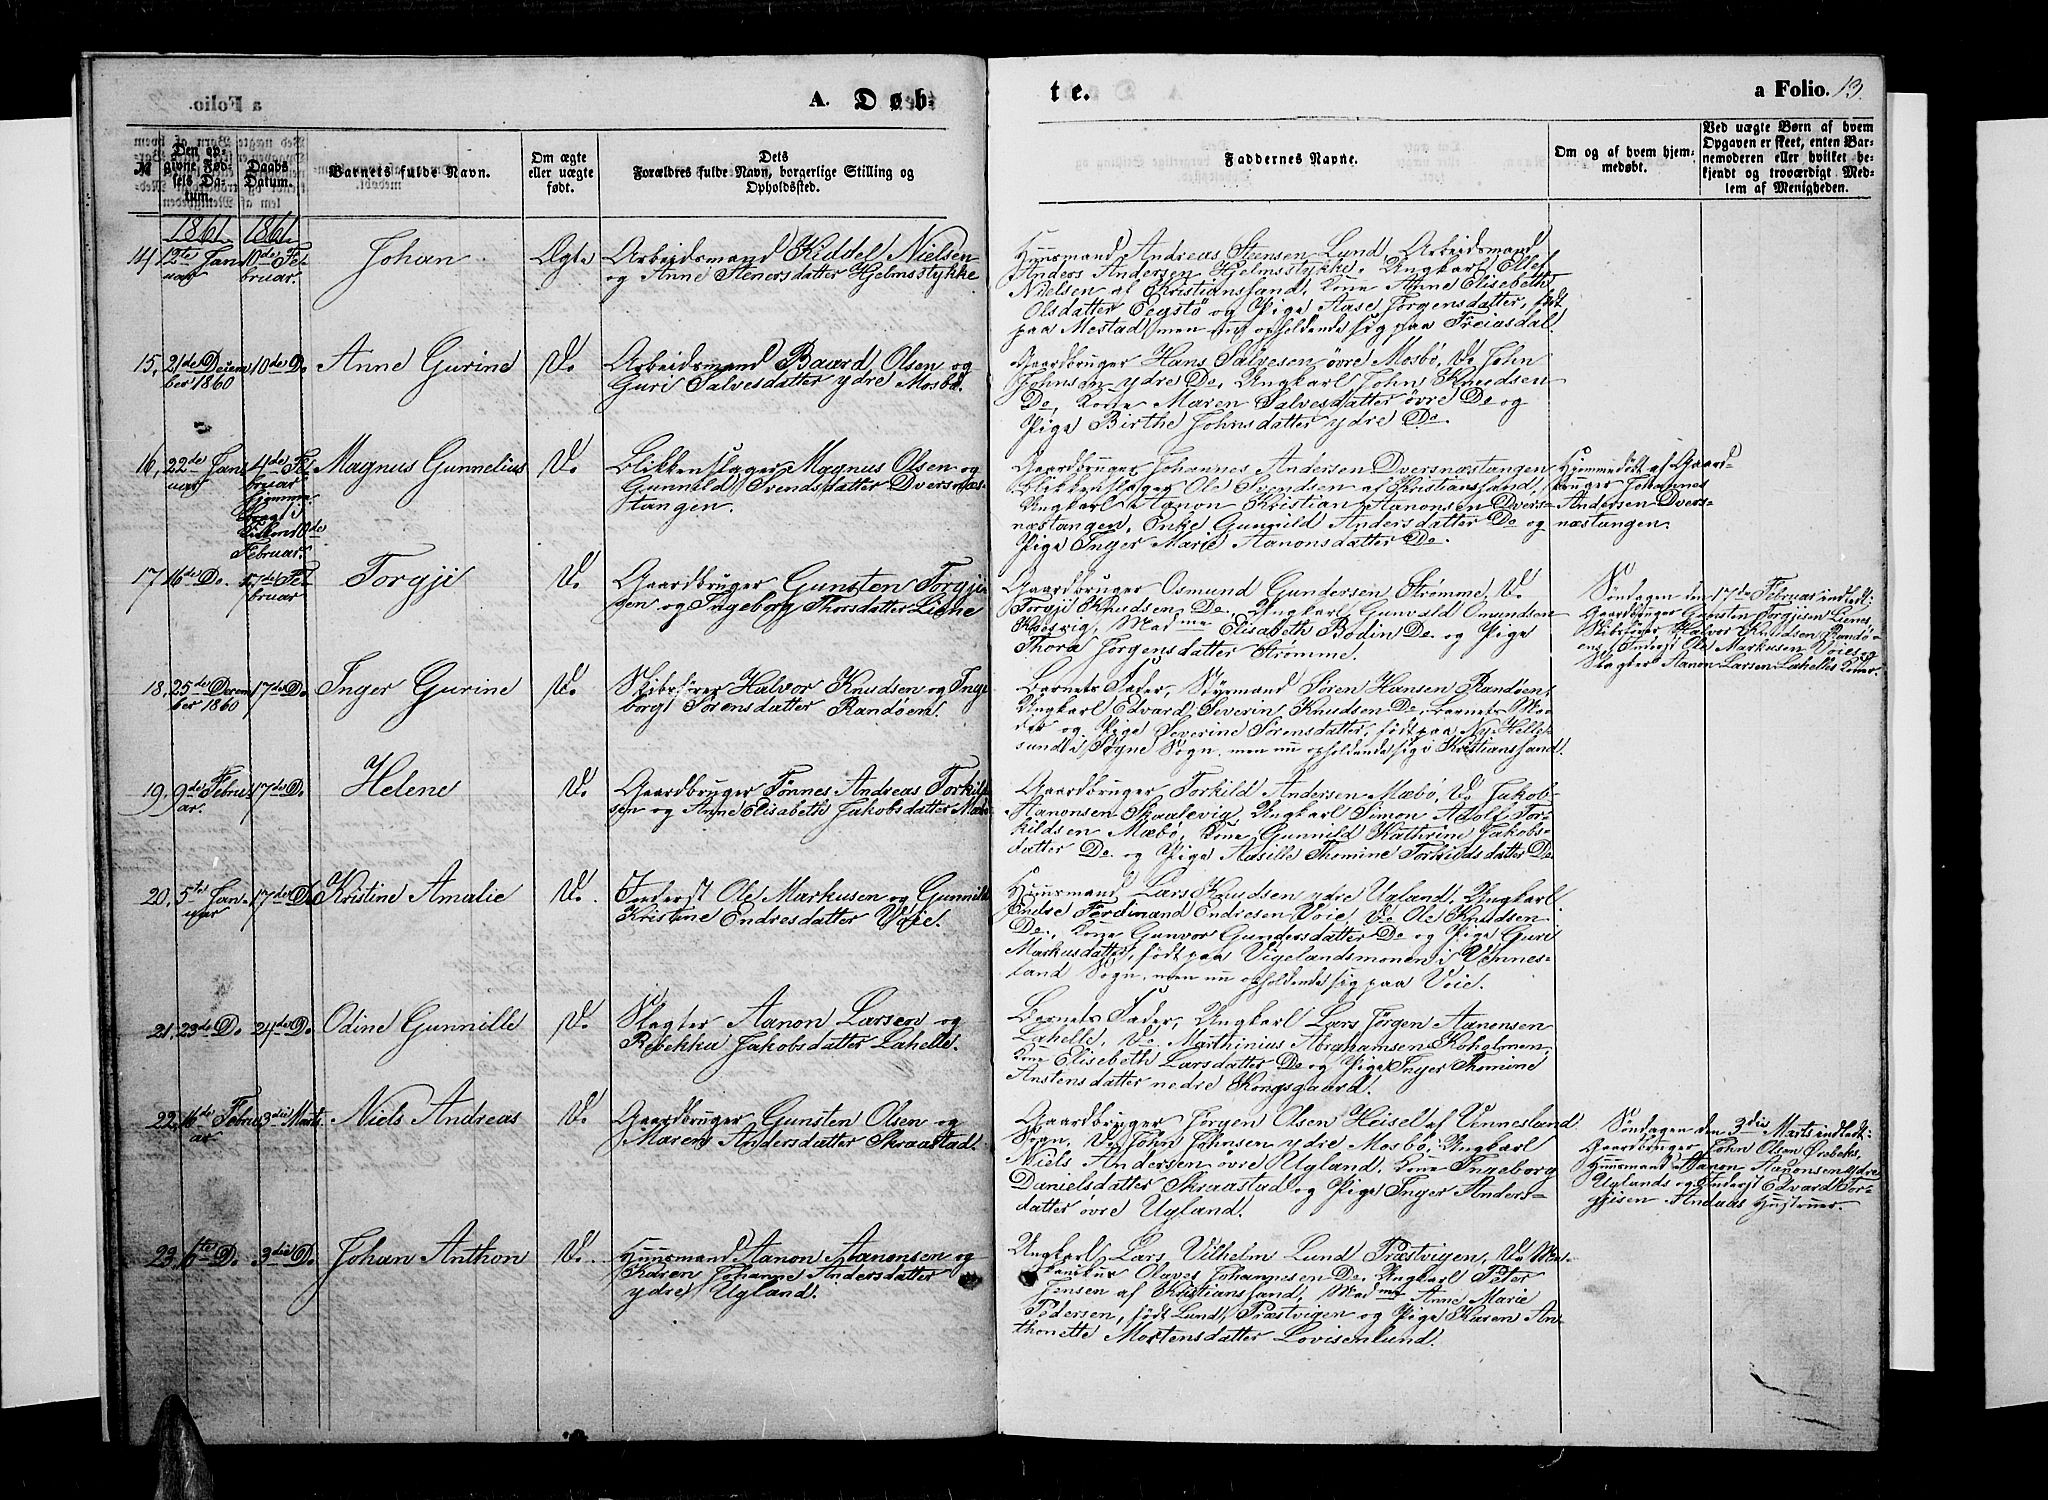 a Folio.
A. Døb-
te.
a Folio. 13.
№
Den op-
givne Fød-
sels Da-
tum.
Daabs
Datum.
Barnets fulde Navn.
Om ægte
eller uægte
født.
Dets
Forældres fulde Navn, borgerlige Stilling og
Opholdssted.
Faddernes Navne.
Om og af hvem hjem-
medøbt.
Ved uægte Børn af hvem
Opgaven er skeet, enten Bar-
nemoderen eller hvilket be-
kjendt og troværdigt Med-
lem af Menigheden.
1861 1861
14, 12te Janu-
uar
10de Fe-
bruar.
Johan
Ægte
Arbeidsmand Kiddel Nielsen
og Anne Stenersdatter Hjelmsstykke
Huusmand Andreas Stensen Lund, Arbeidsmand
Anders Andersen Hjelmsstykke, Ungkarl Ellef
Nielsen af Kristianssand, Kone Anne Elisebeth
Olsdatter Eegstö og Pige Aase Jörgensdatter, födt
paa Mostad, men nu opholdende sig paa Freiasdal
15, 21de Decem-
ber 1860
10de Do
Anne Gurine
Do
Arbeidsmand Baard Olsen og
Guri Salvesdatter ydre Mosbö.
Gaardbruger Hans Salvesen övre Mosbö, Do John
Johnsen ydre Do, Ungkarl John Knudsen
Do, Kone Maren Salvesdatter övre Do og
Pige Birthe Johnsdatter ydre Do.
16, 22de Janu-
uar
4de Fe-
bruar
hjemme
i
Kirken 10de
Februar.
Magnus Gunnelius
Do
Blikkenslager Magnus Olsen og
Gunnild Svendsdatter Dversnæs-
tangen.
Gaardbruger Johannes Andersen Dversnæstangen
Blikkenslager Ole Svendsen af Kristianssand,
Ungkarl Aanon Kristian Aanonsen Dvers-
næstangen, Enke Gunnild Andersdatter Do og
Pige Inger Marie Aanonsdatter Do.
Hjemmedöbt af Gaard-
bruger Johannes
Andersen Dvers-
næstangen.
17 16de Do.
17de Fe-
bruar
Torgji
Do
Gaardbruger Gunsten Torgji-
sen og Ingeborg Thorsdatter Liene
Gaardbruger Osmund Gundersen Strömme, Do
Torgji Knudsen Do, Ungkarl Gunvald Onundsen
Kosvig, Madme Elisabeth Bodin Do. og Pige
Thora Jörgensdatter Strömme.
Söndagen den 17de Februar indledt:
Gaardbruger Gunsten Torgjisen Lienes,
Skibsförer Halvor Knudsen Randö-
ens, Inderst Ole Markusen Voies og
Slagter Aanon Larsen Lahelles Koner.
18, 25de Decem-
ber 1860
17de Do
Inger Gurine
Do
Skibsförer Halvor Knudsen og Inge-
borg Sörensdatter Randöen.
Barnets Fader, Styrmand Sören Hansen Randöen,
Ungkarl Edvard Severin Knudsen Do, Barnets Mo-
der og Pige Severine Sörensdatter, födt paa Ny-Helle-
sund i Søgne Sogn, men nu opholdende sig i Kristianssand.
19, 9de Febru-
ar.
17de Do
Helene
Do
Gaardbruger Tönnes Andreas Torkild-
sen og Anne Elisabeth Jakobsdatter Mæbö
Gaardbruger Torkild Andersen Mæbö, Do Jakob
Aanonsen Skaalevig, Ungkarl Simon Adolf Tor-
kildsen Mæbö, Kone Gunnild Kathrine Jakobs-
datter Do og Pige Aasille Thomine Torkildsdatter Do
20, 5te Jan-
uar
17de Do
Kristine Amalie
Do.
Inderst Ole Markusen og Gunnild
Kristine Endresdatter Voie.
Huusmand Lars Knudsen ydre Ugland, Ungkarl
Endre Ferdinand Endresen Voie, Do Ole Knudsen
Do., Kone Gunvor Gundersdatter Do og Pige Guri
Markusdatter, födt paa Vigelandsmonen i Vennes-
land Sogn, men nu opholdende sig paa Voie.
21, 23de Do.
24de Do.
Odine Gunnille
Do
Slagter Aanon Larsen og
Rebekka Jakobsdatter Lahelle.
Barnets Fader, Ungkarl Lars Jörgen Aanonsen
Lahelle, Do Marthinius Abrahamsen Koholmen,
Kone Elisebeth Larsdatter Do og Pige Inger Thomine
Anstensdatter nedre Kongsgaard.
22, 16de Febru-
ar
3die Marts.
Niels Andreas
Do
Gaardbruger Gunsten Olsen og
Maren Andersdatter Skraastad.
Gaardbruger Jörgen Olsen Heisel af Vennesland
Sogn, Do John Johnsen ydre Mosbö, Ungkarl
Niels Andersen övre Ugland, Kone Ingeborg
Danielsdatter Skraastad og Pige Inger Anders-
datter övre Ugland.
Söndagen den 3die Marts indledt:
Gaardbruger John Olsen Örebeks,
Huusmand Aanon Aanonsen ydre
Uglands og Inderst Edvard Tor-
gjisen Andaas Hustruer.
23, 6te Do.
3die Do.
Johan Anthon
Do.
Huusmand Aanon Aanonsen og
Karen Johanne Andersdatter
ydre Ugland.
Ungkarl Lars Vilhelm Lund Præstvigen, Do
Olaves Johannesen Do, Ungkarl Peter
Jensen af Kristianssand, Madme Anne Marie
Pedersen, födt Lund, Præstvigen og Pige Karen An-
thonette Mortensdatter Lovisenlund.